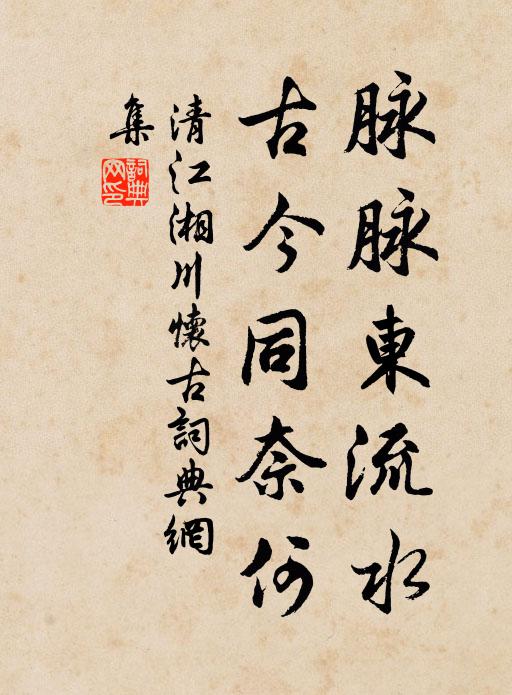 脉脉東流水
古今同奈何
清江湘川懷古詞典網
集
詞典
网印